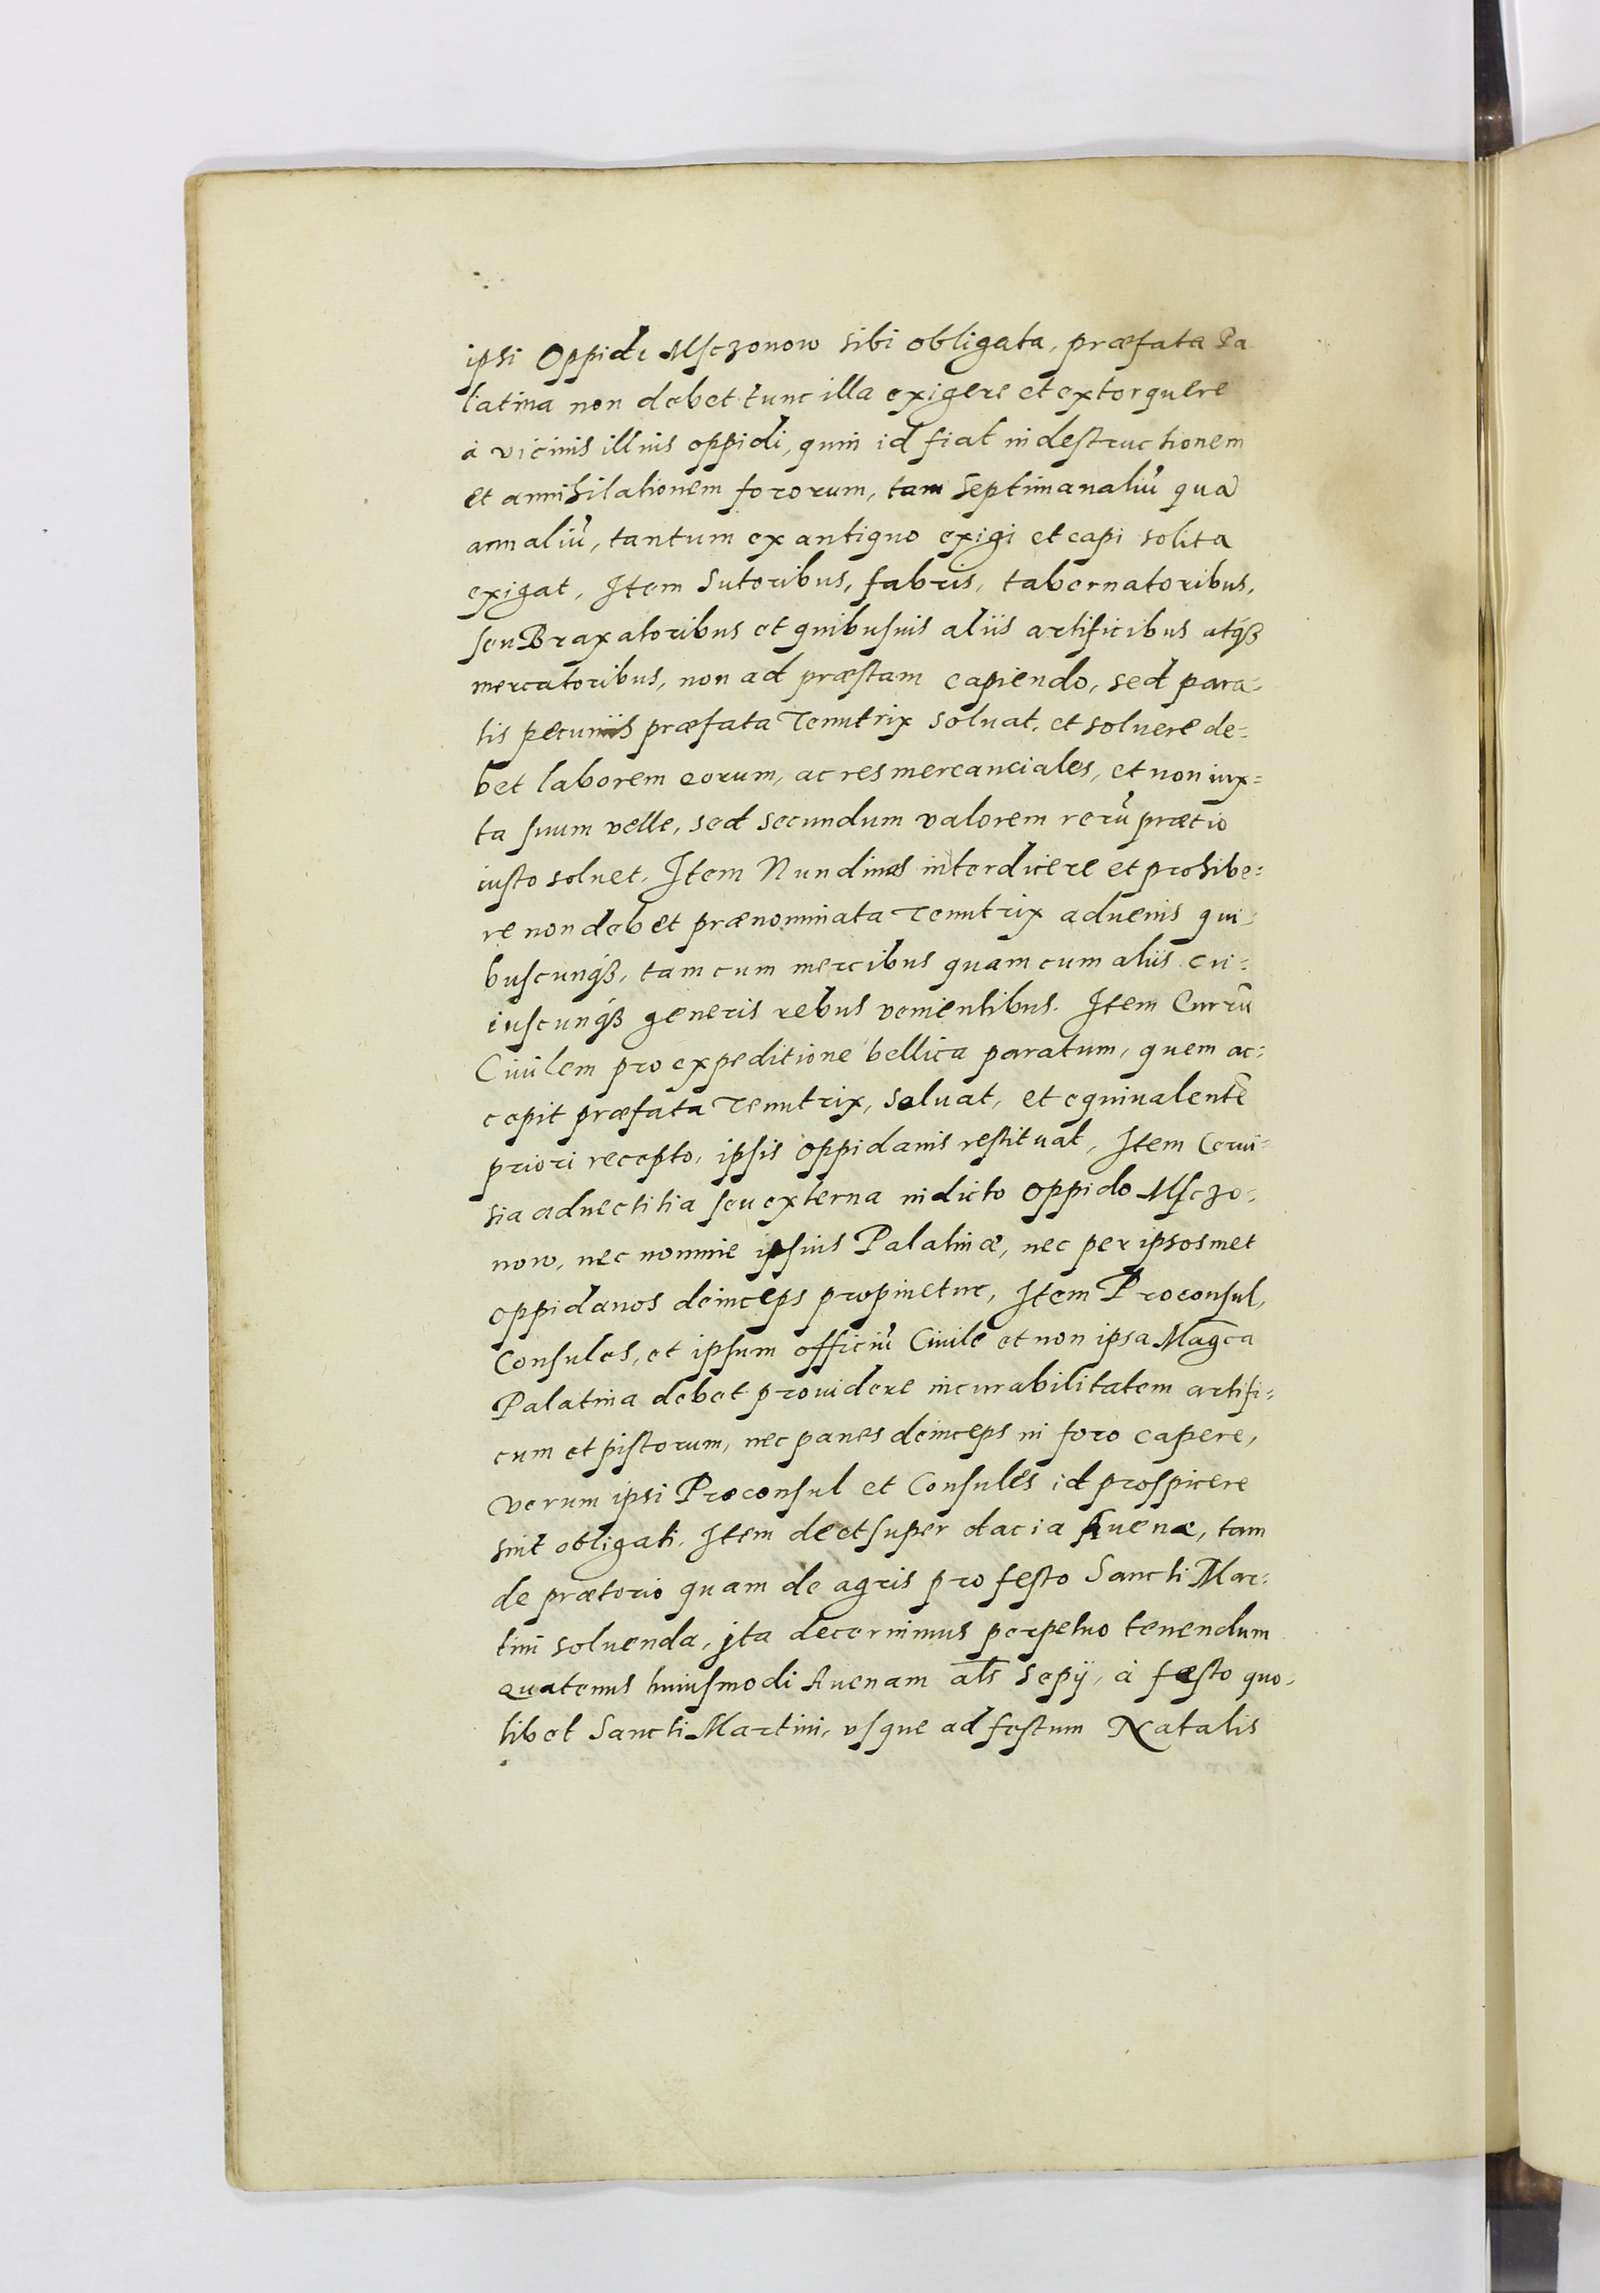 ipsi Oppidi Msczonow sibi obligata, præfata Pa
latina non debet tunc illa exigere et extorquere
à vicinis illius oppidi, quin id fiat in destructionem
et annihilationem fororum, tam Septimanaliū quā
annaliū, tantum ex antiquo exigi et capi solita
exigat, Item Sutoribus, fabris, tabernatoribus,
seu Braxatoribus et quibusuis aliis artificibus atqꝫ
mercatoribus, non ad præstam capiendo, sed para-
tis pecuniis præfata Tenutrix soluat, et soluere de-
bet laborem eorum, ac res mercanciales, et non iux-
ta suum velle, sed secundum valorem rerū prætio
iusto soluet, Item Nundinas interdicere et prohibe-
re non debet prænominata Tenutrix aduenis qui-
buscunqꝫ, tam cum mercibus quam cum aliis cu-
iuscunqꝫ generis rebus venientibus. Item Currū
Ciuilem pro expeditione bellica paratum, quem ac-
cepit præfata Tenutrix, soluat, et equiualentē
priori recepto, ipsis oppidanis restituat, Item Cerui-
sia aduectitia seu externa in dicto Oppido Msczo-
now, nec nomine ipsius Palatinæ, nec per ipsosmet
oppidanos deinceps propinetur, Item Proconsul,
Consules, et ipsum officiū Ciuile et non ipsa Magca
Palatina debet prouidere incurabilitatem artifi-
cum et pistorum, nec panes deinceps in foro capere,
verum ipsi Proconsul et Consules id prospicere
sint obligati. Item de et super dacia Auenæ, tam
de prætorio quam de agris pro festo Sancti Mar-
tini soluenda, ita decernimus perpetuo tenendum
quatenus huiusmodi Auenam als Sepÿ, à festo quo-
libet Sancti Martini, vsque ad festum Natalis